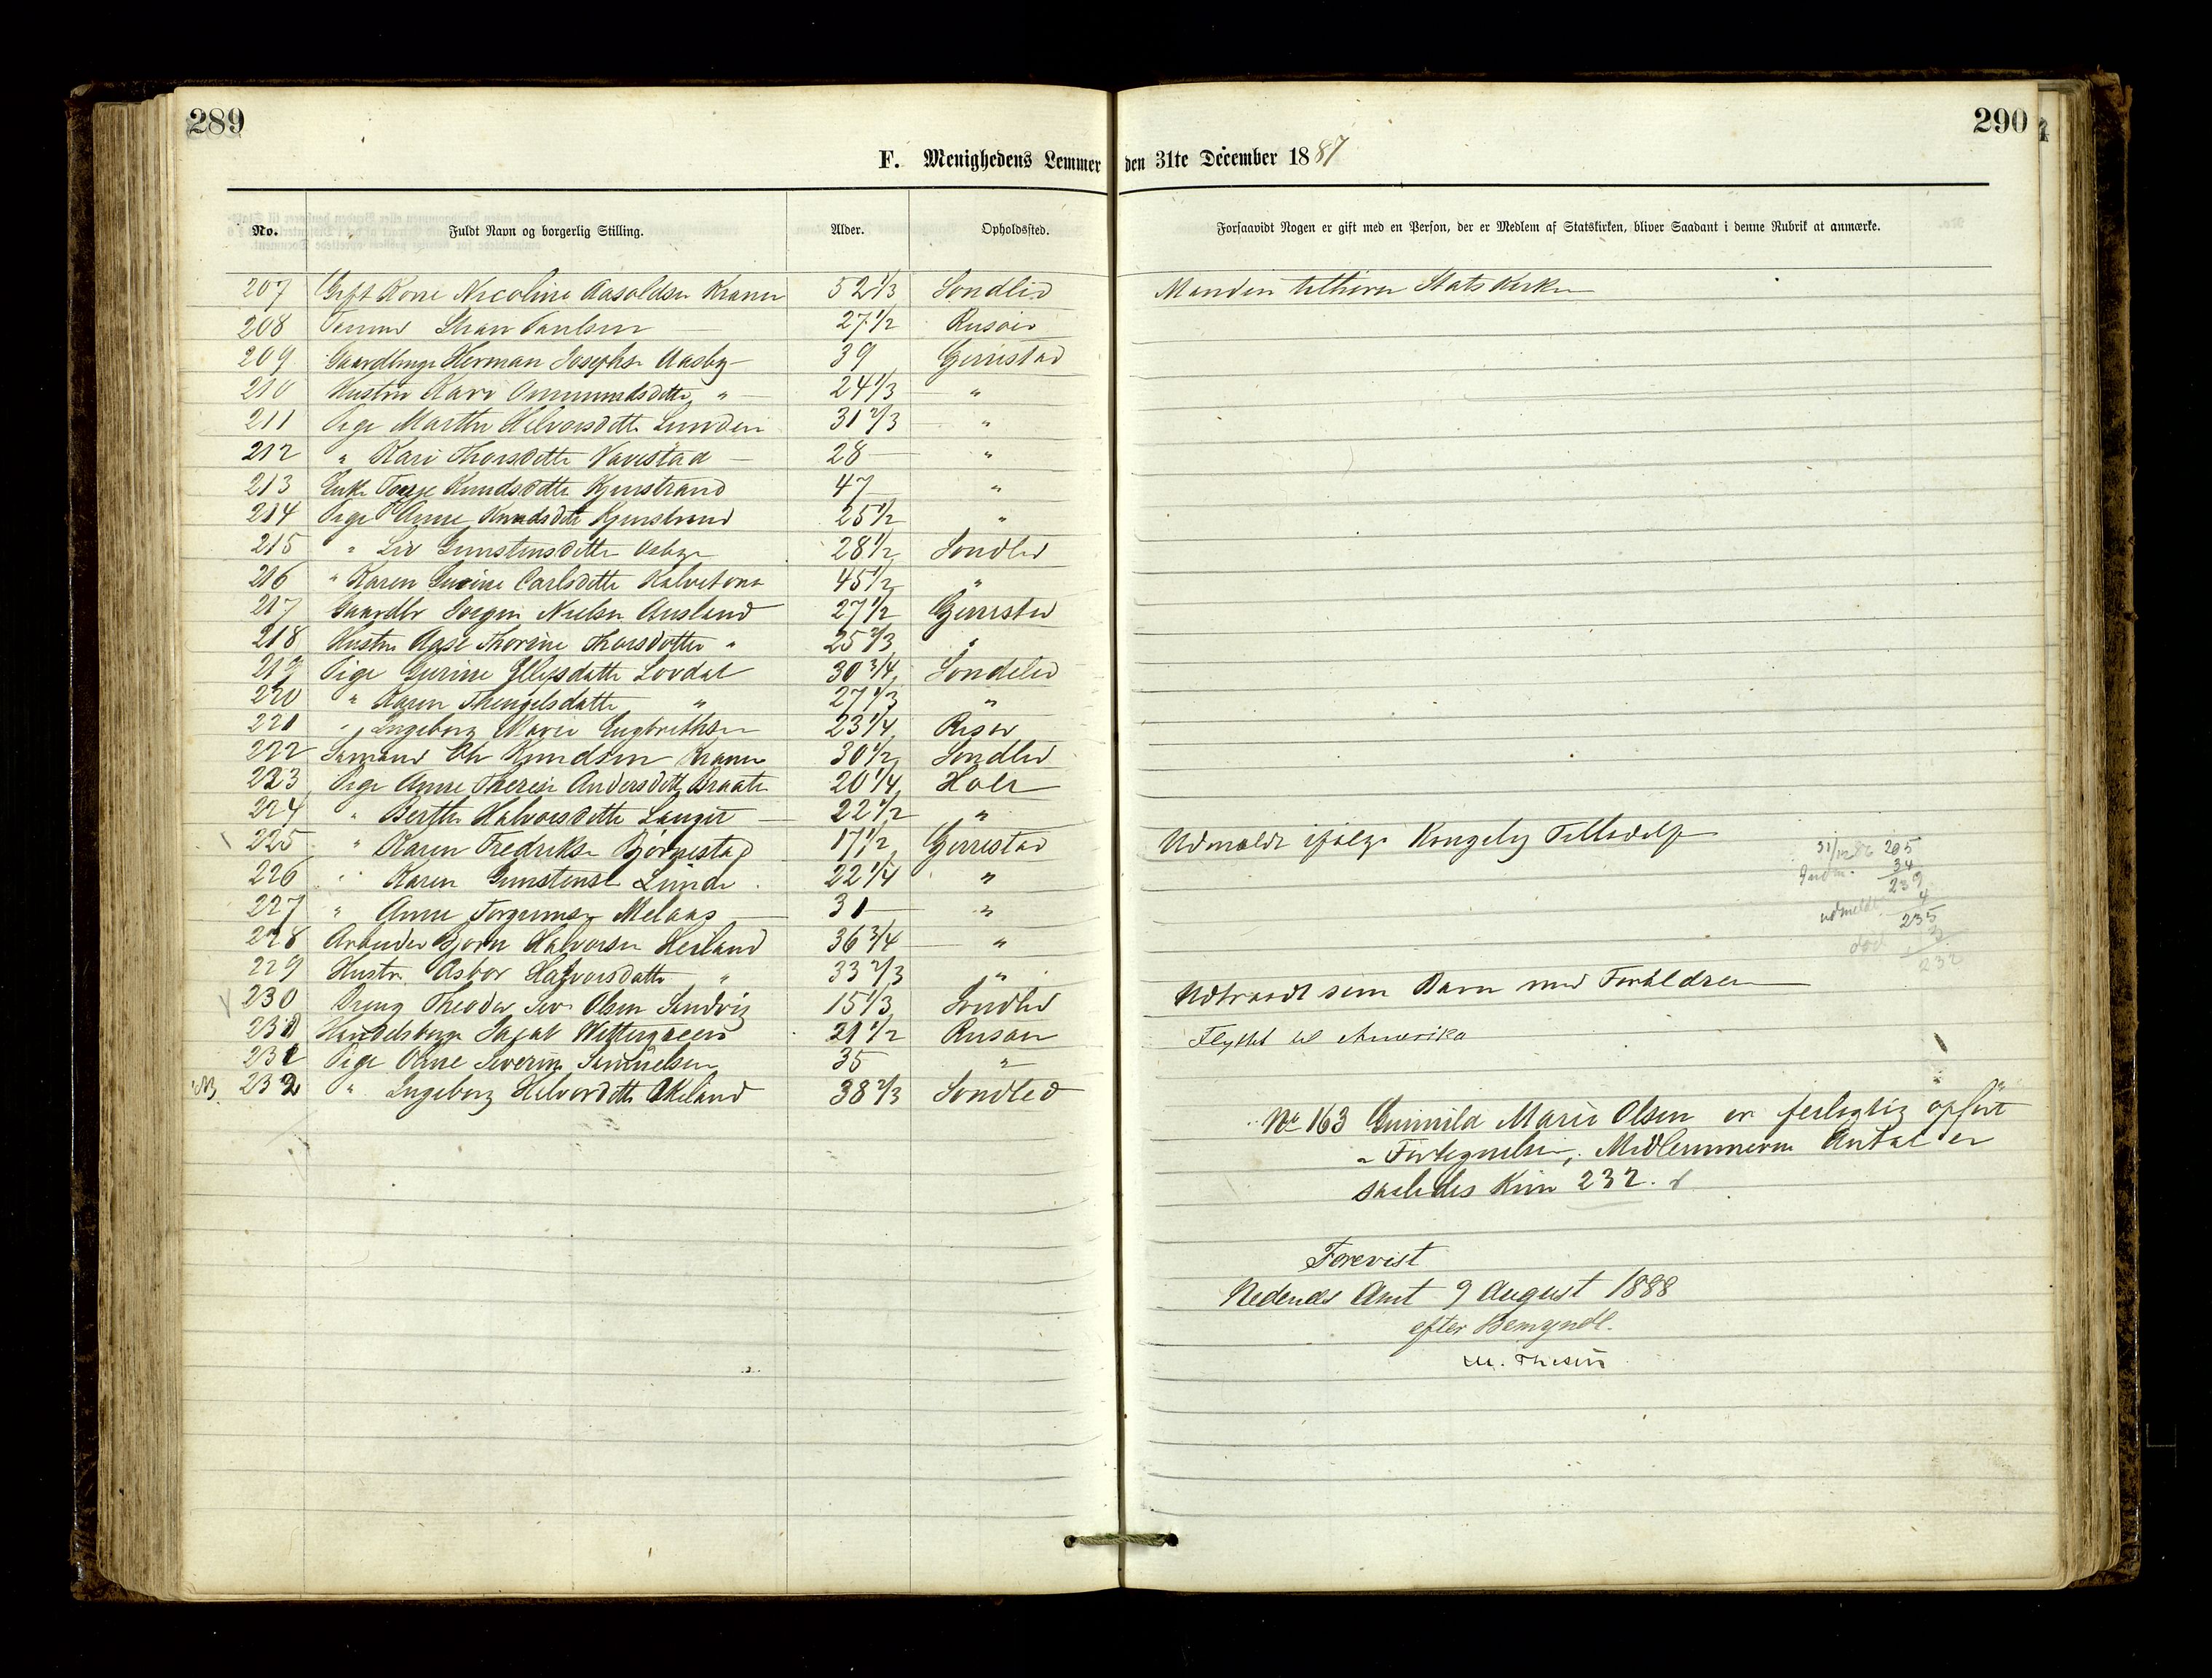 289
290
F. Menighedens Lemmer den 31te December 1887
No. Fuldt Navn og borgerlig Stilling. Alder. Opholdssted. Forsaavidt Nogen er gift med en Person, der er Medlem af Statskirken, bliver Saadant i denne Rubrik at anmærke.
207 Gift Kone Nicoline Aasoldsn Kranen 52 1/3 Sondlid Manden tilhører Statskirken
208 27 1/2 Risøer
209 Gaardbruger Herman Josephs. Aasby 39 Gjerrestad
210 Hustru Kari Ommundsdatter " 24 1/3 "
211 Pige Marthe Helvorsdatt Lunden 31 2/3 "
212 " Kari Thorsdatte Vavestad 28 "
213 Enke Torje Knudsdatte Kjenstrand 47 "
214 Pige Anne Knudsdatt Kjenstrand 25 1/2 "
215 " Liv Gunstensdatte 28 1/2 Sondled
216 " Karen Gurine Carlsdatte 45 1/2 "
217 Gaardbr Jørgen Nielsen Ausland 27 1/2 Gjerrestad
218 Hustru Aase Thorine Thorsdatter " 25 2/3 "
219 Pige Gurine Ellefsdatte Lovdal 30 3/4 Sondeled
220 " Karen Thengelsdatte " 27 1/3 "
221 " Ingeborg Marie Engbrethsen 23 1/4 Risør
222 Sømand Ole Knudsen Kranen 30 1/2 Sondled
223 Pige Anne Therese Andersdatt Braate 20 1/4 Holt
224 " Berthe Halvorsdatte 22 1/2 "
225 " Karen Fredrikse Bjørnestad 17 1/2 Gjerrestad Udmeldt ifølge Kongelig Tilladelse
31/12 86 205
Indm. 34
239
226 " Karen Gunstense Linde 22 1/4 "
udmeldt 4
235
227 " Anne Torgrimsen Melaas 31 "
død 3
232
228 Arbeider Bjørn Halvorsen Heiland 36 3/4 "
229 Hustru Asbor Halvorsdatte " 33 2/3 "
230 Dreng Theodor Sev. Olsen Sandvig 15 1/3 Sondled Udtraadt som Barn med Forældren
231 Handelsborger Jacob Wettergreen 21 1/2 Risøer Flyttet til Amerika
231 Pige Severine Samuelsen 35 "
NB 232 " Ingeborg Helvordatte Økeland 38 2/3 Sondled
No 163 Gunnild Marie Olsen er feilagtig opført
i Fortegnelsen, Medlemmernes Antal er
saaledes Kun 232.
Forevist
Nedenes Amt 9 August 1888
efter Bemyndl.
M. Thesen